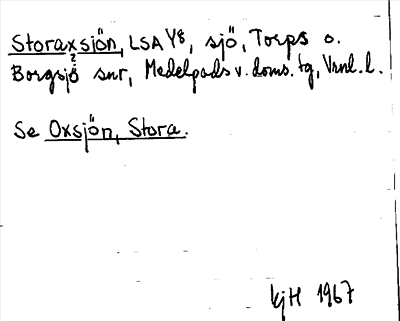 Storaxsjön, LSA Y8, sjö, Torps o.
Borgsjö snr, Medelpads v. doms. tg, Vrnl. l.
Se Oxsjön, Stora.
kjH 1967